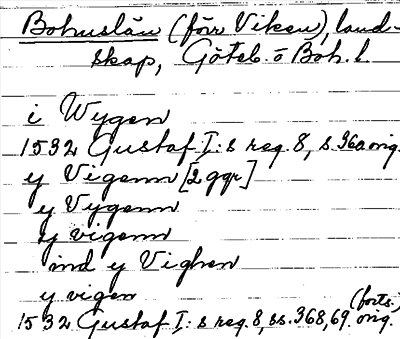 Bohuslän (förr Viken), land-
skap, Göteb. o Boh. l.
i Wygen
1532 Gustaf I:s reg. 8, s. 360 orig.
y Vigenn [2 ggr]
y Vygenn
y vigenn
ind y Vighen
y vigen
(forts.)
1532 Gustaf I:s reg. 8, ss. 368, 69. orig.